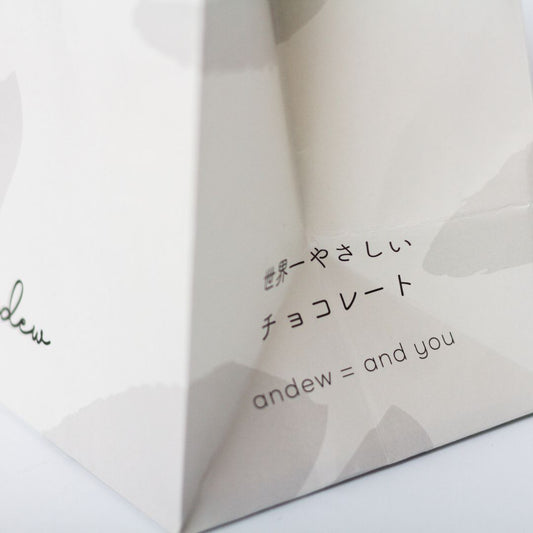 世界一やさしい
チョコレート
andew = and you
dew